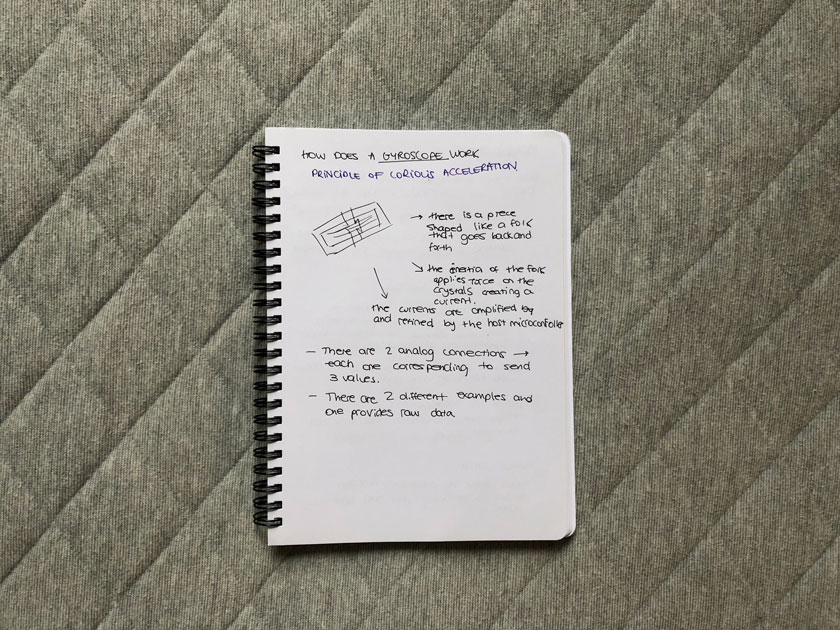 HOW DOES A GYROSCOPE WORK
PRINCIPLE OF CORIOLIS ACCELERATION.
→ there is a piece
shaped like a folk
that goes back and
forth
↘ the inertia of the folk
applies force on the
crystals creating a
current.
the currents are amplified by
and refined by the host microcontoller
- There are 2 analog connections →
each one corresponding to send
3 values.
- There are 2 different examples and
one provides raw data